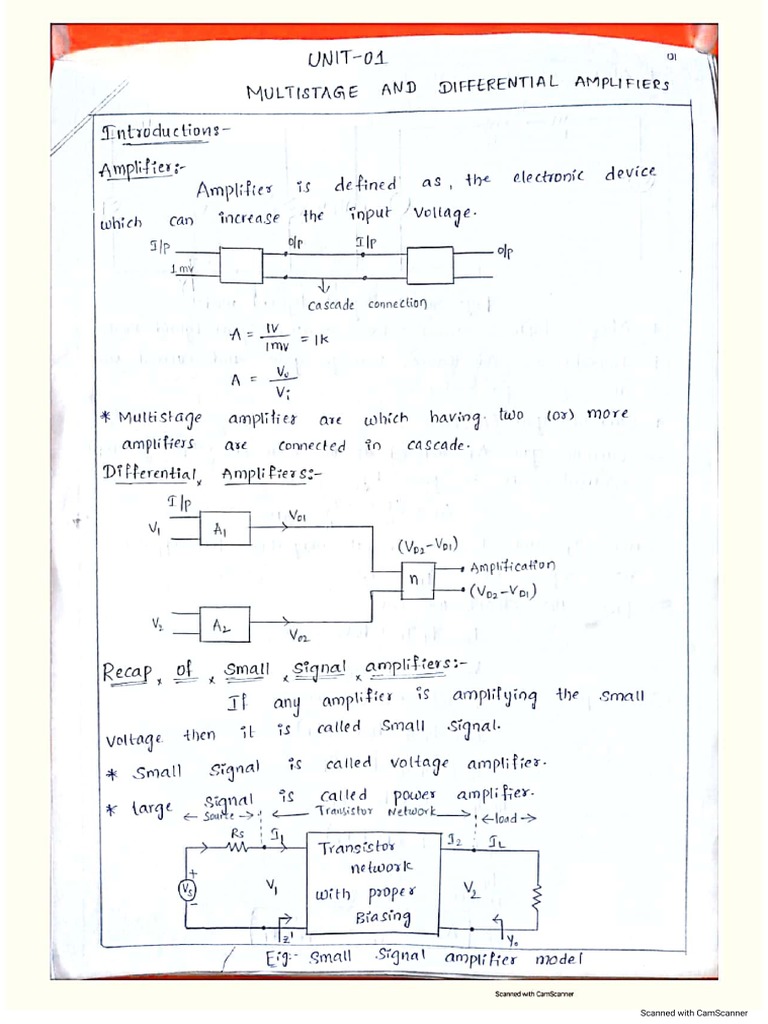 UNIT-01
01
MULTISTAGE AND DIFFERENTIAL AMPLIFIERS
Introductions-
Amplifier:-
Amplifier is defined as, the electronic device
which can increase the input voltage.
I/p O/p I/p O/p
1mv
Cascade connection
A = 1V / 1mv = 1k
A = Vo / Vi
* Multistage amplifier are which having two (or) more
amplifiers are connected in cascade.
Differential, Amplifiers:-
I/p
V1 A1 V01
(V02-V01)
n Amplification
(V02-V01)
V2 A2 V02
Recap of small signal amplifiers:-
If any amplifier is amplifying the small
voltage then it is called small signal.
* Small signal is called voltage amplifier.
* large signal is called power amplifier.
← Source → ← Transistor Network → ←load→
Rs I1 I2 IL
Transistor
network
with proper
Biasing
+ Vs - V1 V2
Z' Yo
Fig:- Small signal amplifier model
Scanned with CamScanner
Scanned with CamScanner